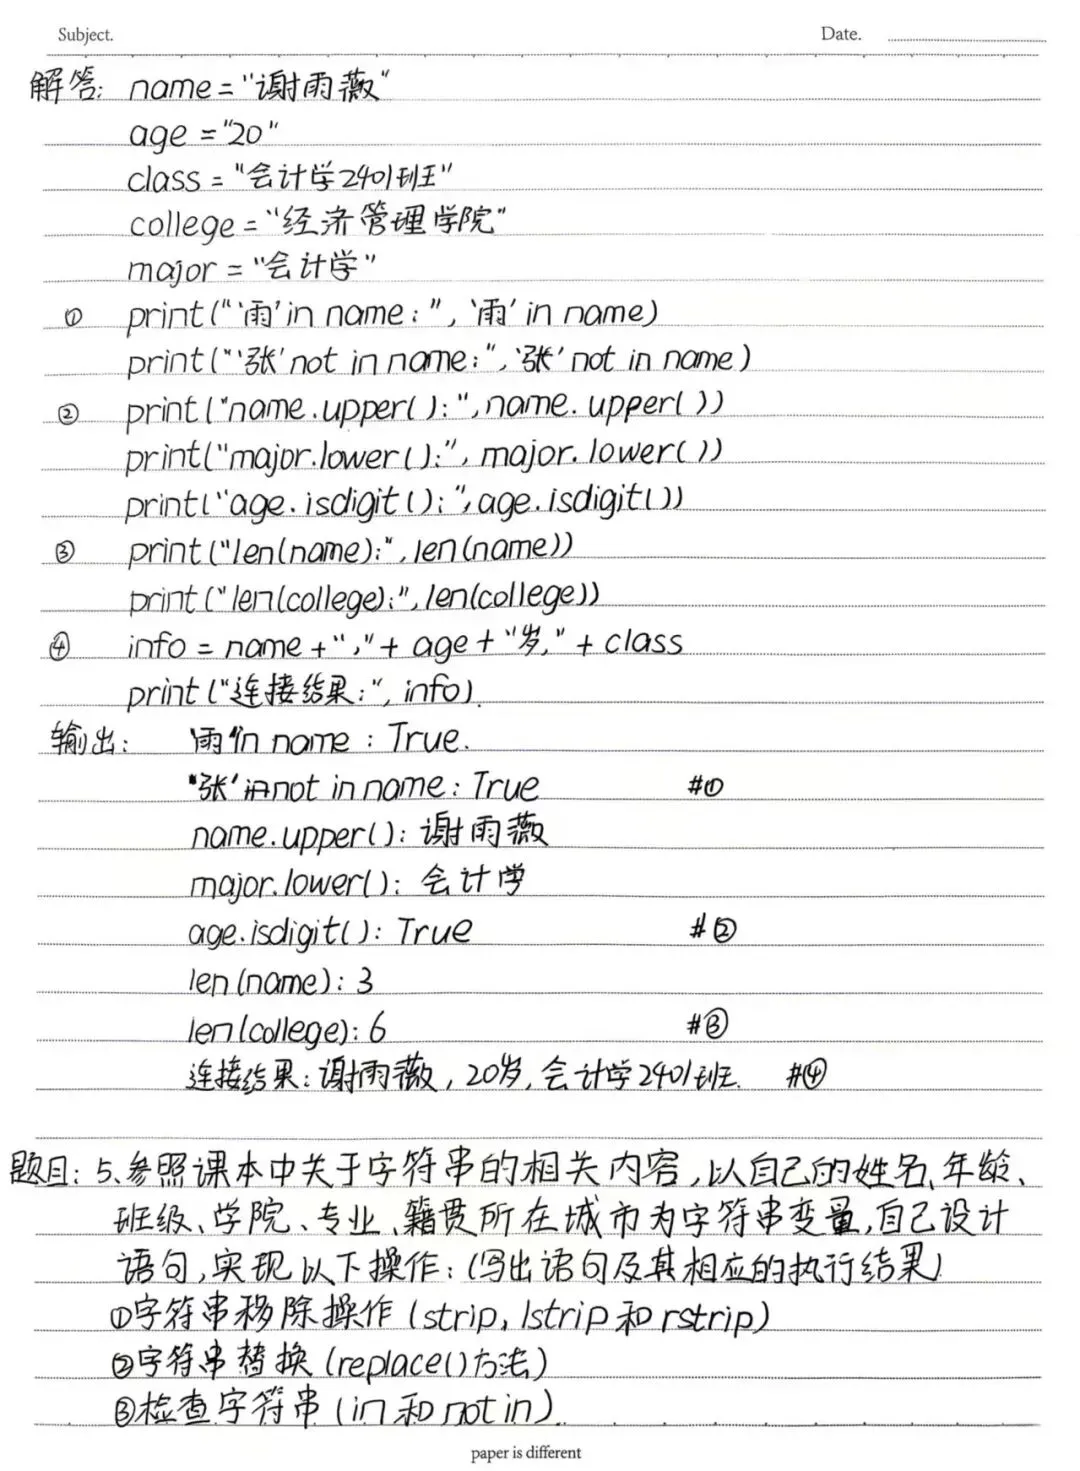 Subject. Date.
解答: name="谢雨薇"
age="20"
class="会计学2401班"
college="经济管理学院"
major="会计学"
① print("'雨'in name:", '雨' in name)
print("'张'not in name:", '张' not in name)
② print("name.upper():",name.upper())
print("major.lower():", major.lower())
print("age.isdigit():",age.isdigit())
③ print("len(name):",len(name))
print("len(college):",len(college))
④ info = name+","+ age+"岁,"+ class
print("连接结果:", info).
输出: '雨'in name : True.
'张'not in name: True #①
name.upper(): 谢雨薇
major.lower(): 会计学
age.isdigit(): True #②
len(name): 3
len(college): 6 #③
连接结果: 谢雨薇, 20岁, 会计学2401班. #④
题目: 5、参照课本中关于字符串的相关内容,以自己的姓名、年龄、
班级、学院、专业、籍贯所在城市为字符串变量,自己设计
语句,实现以下操作:(写出语句及其相应的执行结果)
①字符串移除操作(strip, lstrip和rstrip)
②字符串替换(replace()方法)
③检查字符串(in和not in).
paper is different